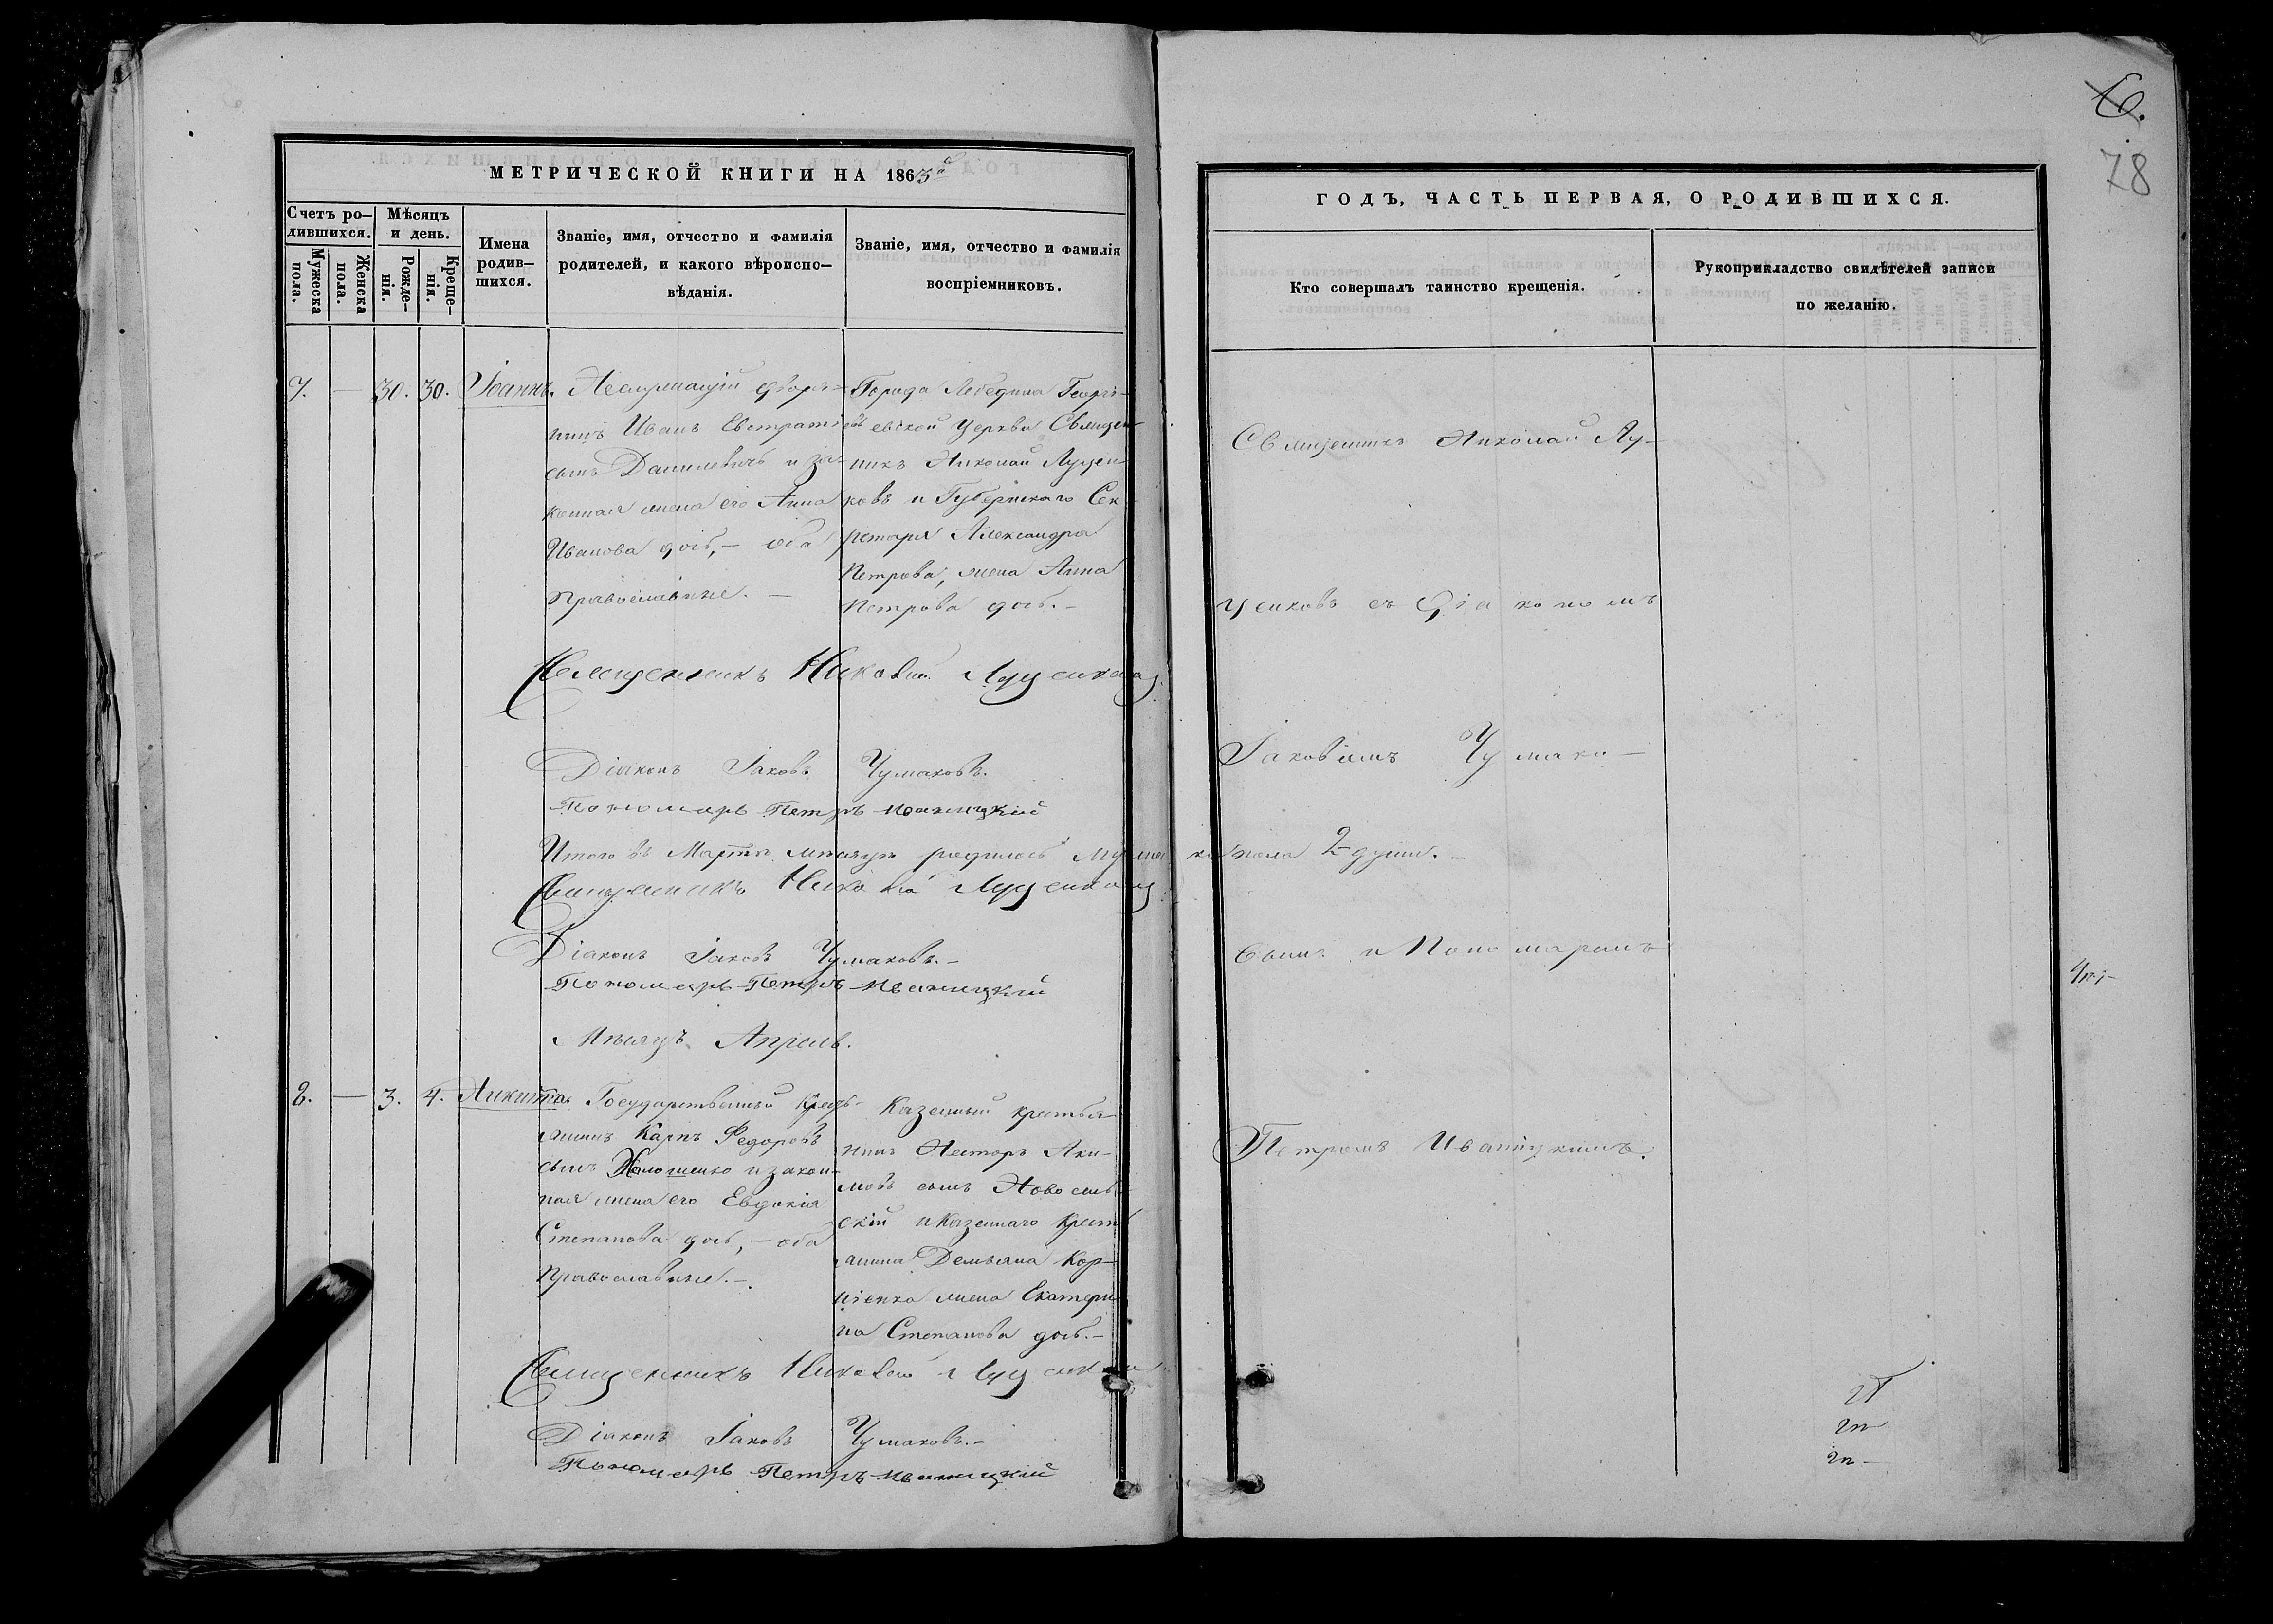 6.
78
МЕТРИЧЕСКОЙ КНИГИ НА 1863й
Счетъ ро-
дившихся.
Мужеска
пола.
Женска
пола.
Мѣсяцъ
и день.
Рожде-
нія.
Креще-
нія.
Имена
родив-
шихся.
Званіе, имя, отчество и фамилія
родителей, и какого вѣроиспо-
вѣданія.
Званіе, имя, отчество и фамилія
воспріемниковъ.
7. — 30. 30. Іоаннъ.
дворя-
нинъ Иванъ Евстратіевъ
сынъ Данилевичъ и за-
конная жена его Анна
Иванова дочь, — оба
православные. —
Города Лебедина Георгі-
евской Церкви Священ-
никъ Николай Луцен-
ковъ и Губернскаго Сек
ретаря Александра
Петрова, жена Анна
Петрова дочь. —
Священникъ Николай Луценковъ
Діаконъ Іаковъ Чумаковъ.
Пономарь Петръ Иваницкій
Итого въ Мартѣ мѣсяцѣ родилось мужеска пола 2 души. —
Священникъ Николай Луценковъ
Діаконъ Іаковъ Чумаковъ. —
Пономарь Петръ Иваницкій
Мѣсяцъ Апрель.
— 3. 4. Никита.
Государственный Кресть-
янинъ Карпъ Федоровъ
сынъ и закон-
ная жена его Евдокія
Степанова дочь, — оба
православные. —
Казенный крестья-
нинъ Несторъ Аки-
мовъ сынъ Новосель-
скій и Казеннаго Кресть
янина Демьяна Кор-
ніенка жена Екатери-
на Степанова дочь. —
Священникъ Николай Луценковъ
Діаконъ Іаковъ Чумаковъ. —
Пономарь Петръ Иваницкій
ГОДЪ, ЧАСТЬ ПЕРВАЯ, О РОДИВШИХСЯ.
Кто совершалъ таинство крещенія.
Рукоприкладство свидѣтелей записи
по желанію.
Священникъ Николай Лу-
ценковъ съ Діакономъ
Іаковомъ Чумако-
вымъ и Пономаремъ
Петромъ Иваницкимъ.